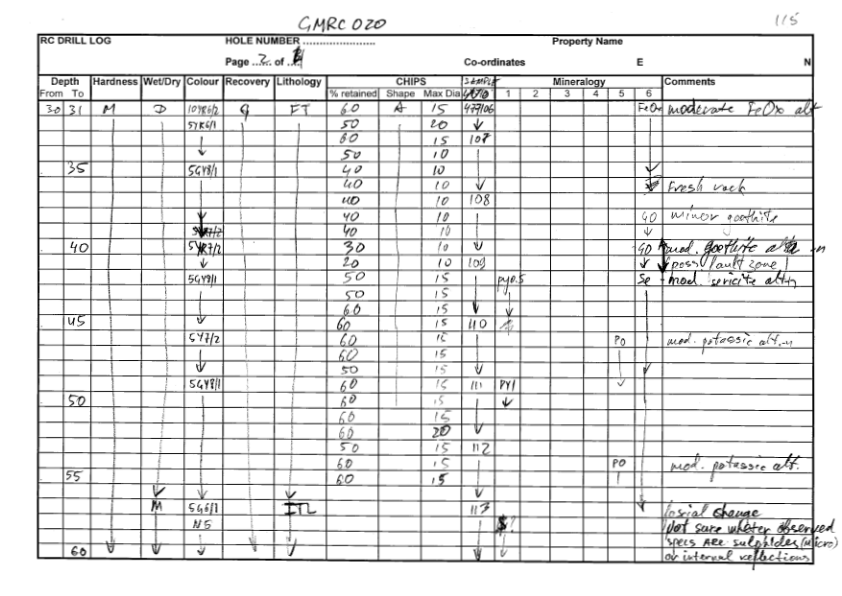 GMRC 020
115
RC DRILL LOG HOLE NUMBER ........................ Property Name
Page ..2.. of .. Co-ordinates E N
Depth Hardness Wet/Dry Colour Recovery Lithology CHIPS SAMPLE Mineralogy Comments
From To % retained Shape Max Dia 1 2 3 4 5 6
30 31 M D 10YR6/2 G FT 60 A 15 477106 FeOx moderate FeOx alt
5YR6/1 50 20
60 15 107
50 10
35 5GY8/1 40 10
40 10 Fresh rock
40 10 108
40 10 GO minor goethite
40 10
40 5YR7/2 30 10 GO mod. goethite
20 10 109 (poss fault zone)
5GY8/1 50 15 py0.5 Se mod. sericite altn
50 15
60 15
45 60 15 110
5Y7/2 60 15 PO mod. potassic alt.-n
60 15
50 15
5GY8/1 60 15 111 PY1
50 60 15
60 15
60 20
50 15 112
60 15 PO mod. potassic alt.
55 60 15
M 5G6/1 ITL 113 change
N5 ? Not sure whether observed
specs are sulphides (micro)
60 or internal reflections